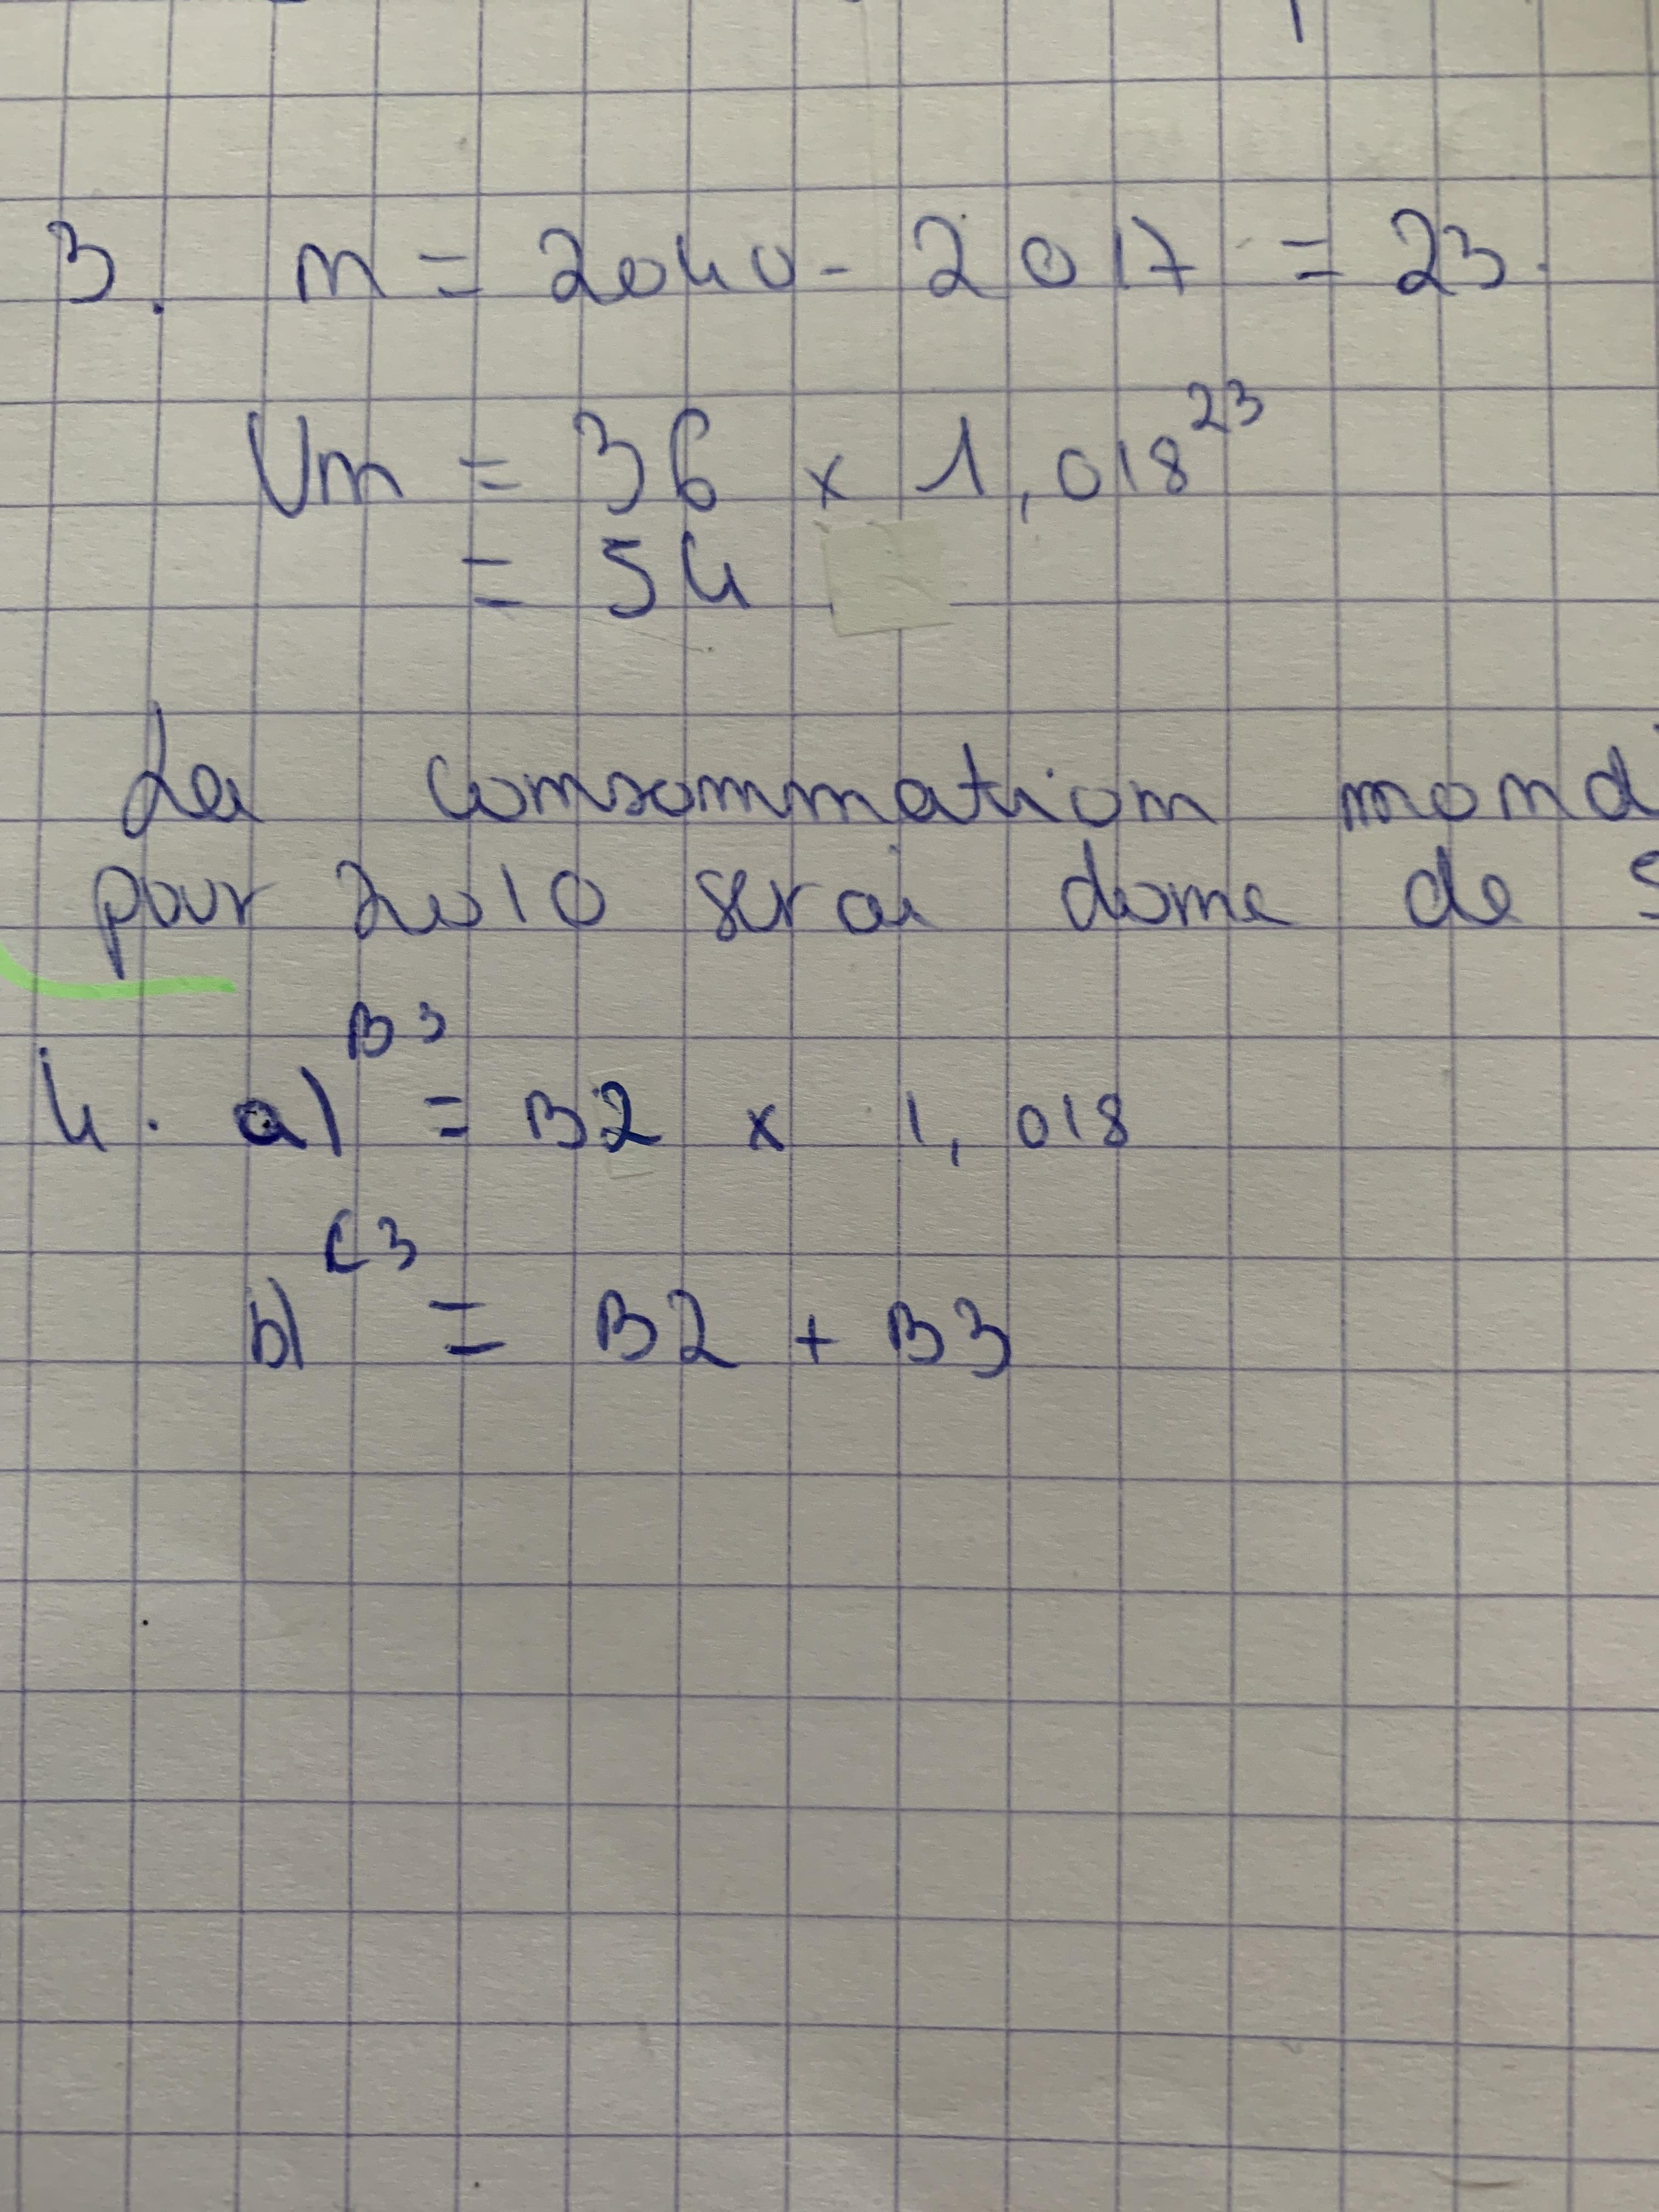 3. n = 2040 - 2017 = 23.
Un = 36 x 1,018²³
= 54
La consommation mond
pour 2010 serai donc de 5
B3
4. a) = B2 x 1,018
C3
b) = B2 + B3